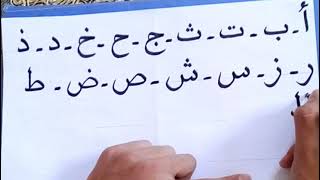 أ - ب - ت - ث - ج - ح - خ - د - ذ
ر - ز - س - ش - ص - ض - ط